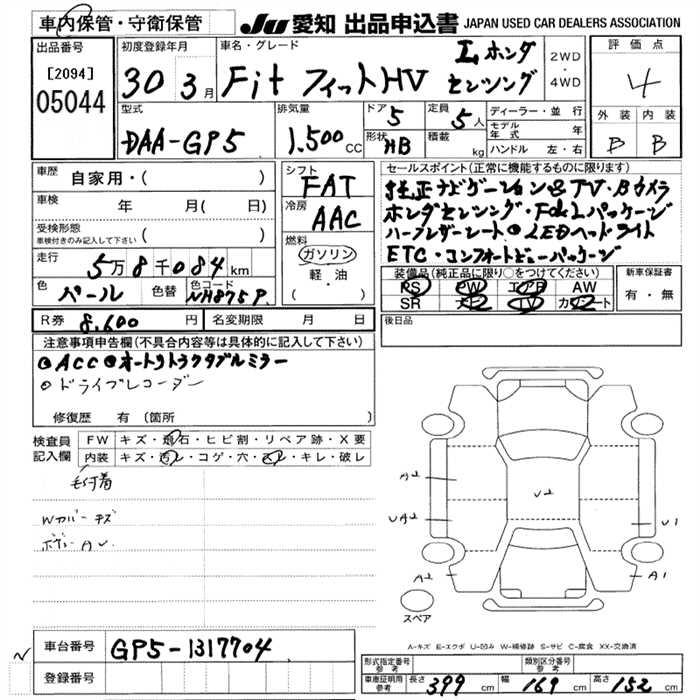 車内保管・守衛保管
JU 愛知 出品申込書 JAPAN USED CAR DEALERS ASSOCIATION
出品番号
[2094]
05044
初度登録年月
30 3月
車名・グレード
Fit フィットHV L ホンダ センシング
2WD
4WD
評価点
4
外装 内装
B B
型式
DAA-GP5
排気量
1.500 CC
ドア
5
形状
HB
定員
5人
積載
kg
ディーラー・並行
モデル年式 年
ハンドル 左・右
車歴 自家用・( )
車検 年 月( 日)
受検形態
車検付きのみ記入して下さい ( )
走行 5万8千084km
色 パール 色替 色コード NH875P
シフト
FAT
冷房
AAC
燃料
ガソリン
軽・油
( )
セールスポイント(正常に機能するものに限ります)
純正ナビゲーション&TV・Bカメラ
ホンダセンシング・F&Lパッケージ
ハーフレザーシート LEDヘッドライト
ETC・コンフォートビューパッケージ
装備品(純正品に限り○をつけてください)
PS PW エアB AW
SR ナビ TV カワシート
新車保証書
有・無
R券 8,600円 名変期限 月 日
後日品
注意事項申告欄(不具合内容等は具体的に記入して下さい)
ACC オートリトラクタブルミラー
ドライブレコーダー
修復歴 有 (箇所 )
検査員記入欄
FW キズ・飛石・ヒビ割・リペア跡・X要
内装 キズ・汚レ・コゲ・穴・スレ・キレ・破レ
毛付着
Wカバー キズ
ボデー AU
A2
UA2
A2
U2
U1
A1
スペア
A-キズ E-エクボ U-凹み W-補修跡 S-サビ C-腐食 XX-交換済
車台番号 GP5-1317704
登録番号
形式指定番号 参考
類別区分番号 参考
車庫証明用 参考 長さ 399cm 幅 169cm 高さ 152cm